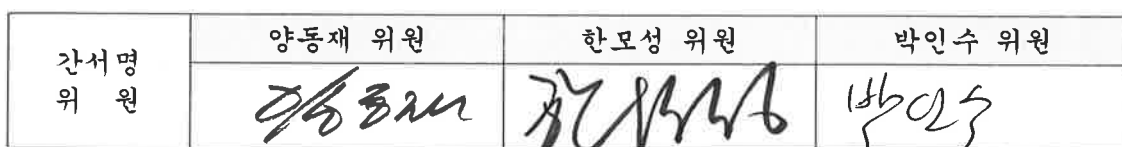 간서명
위 원
양동재 위원
한모성 위원
박인수 위원
양동재
박인수